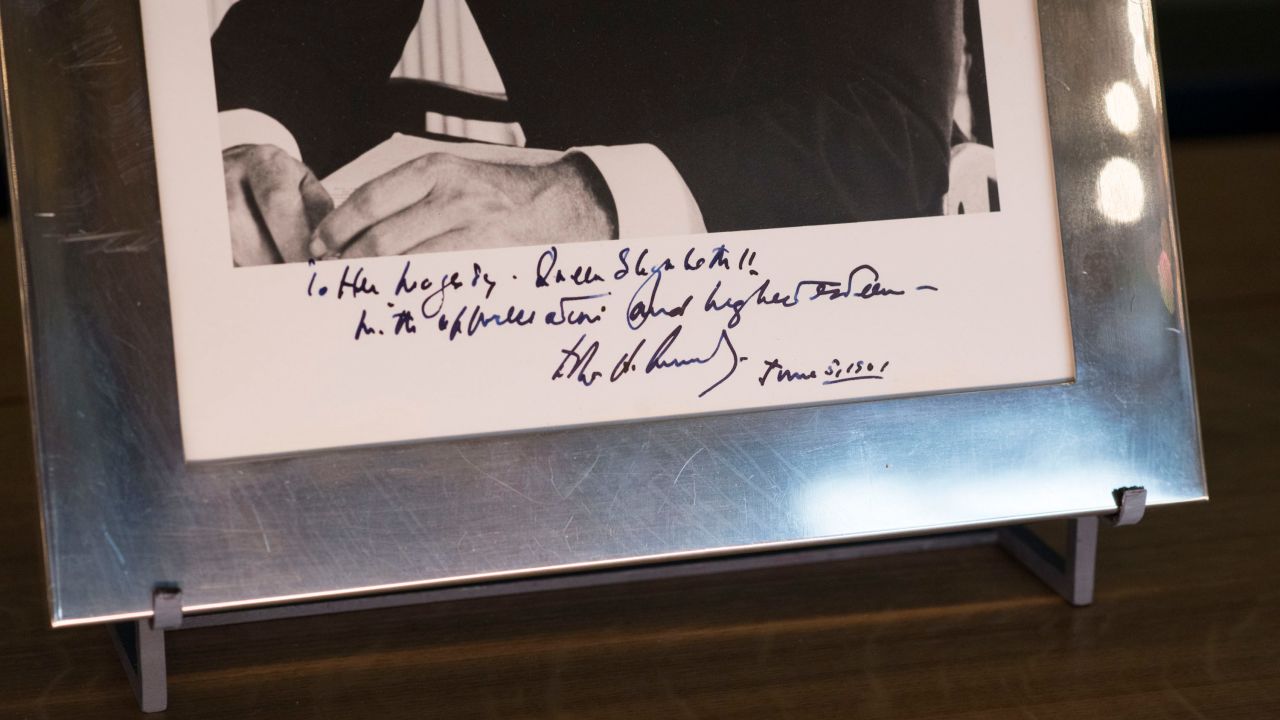 To Her Majesty. Queen Elizabeth II
with appreciation and highest esteem —
John F. Kennedy.
June 5, 1961